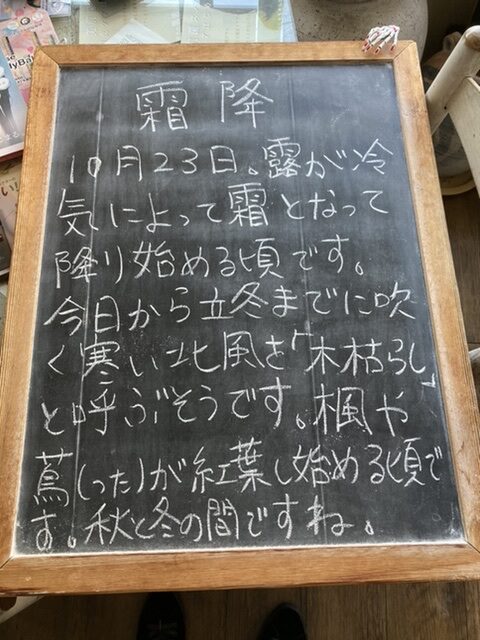 霜降
10月23日。露が冷
気によって霜となって
降り始める頃です。
今日から立冬までに吹
く寒い北風を「木枯らし」
と呼ぶそうです。楓や
蔦(つた)が紅葉し始める頃で
す。秋と冬の間ですね。